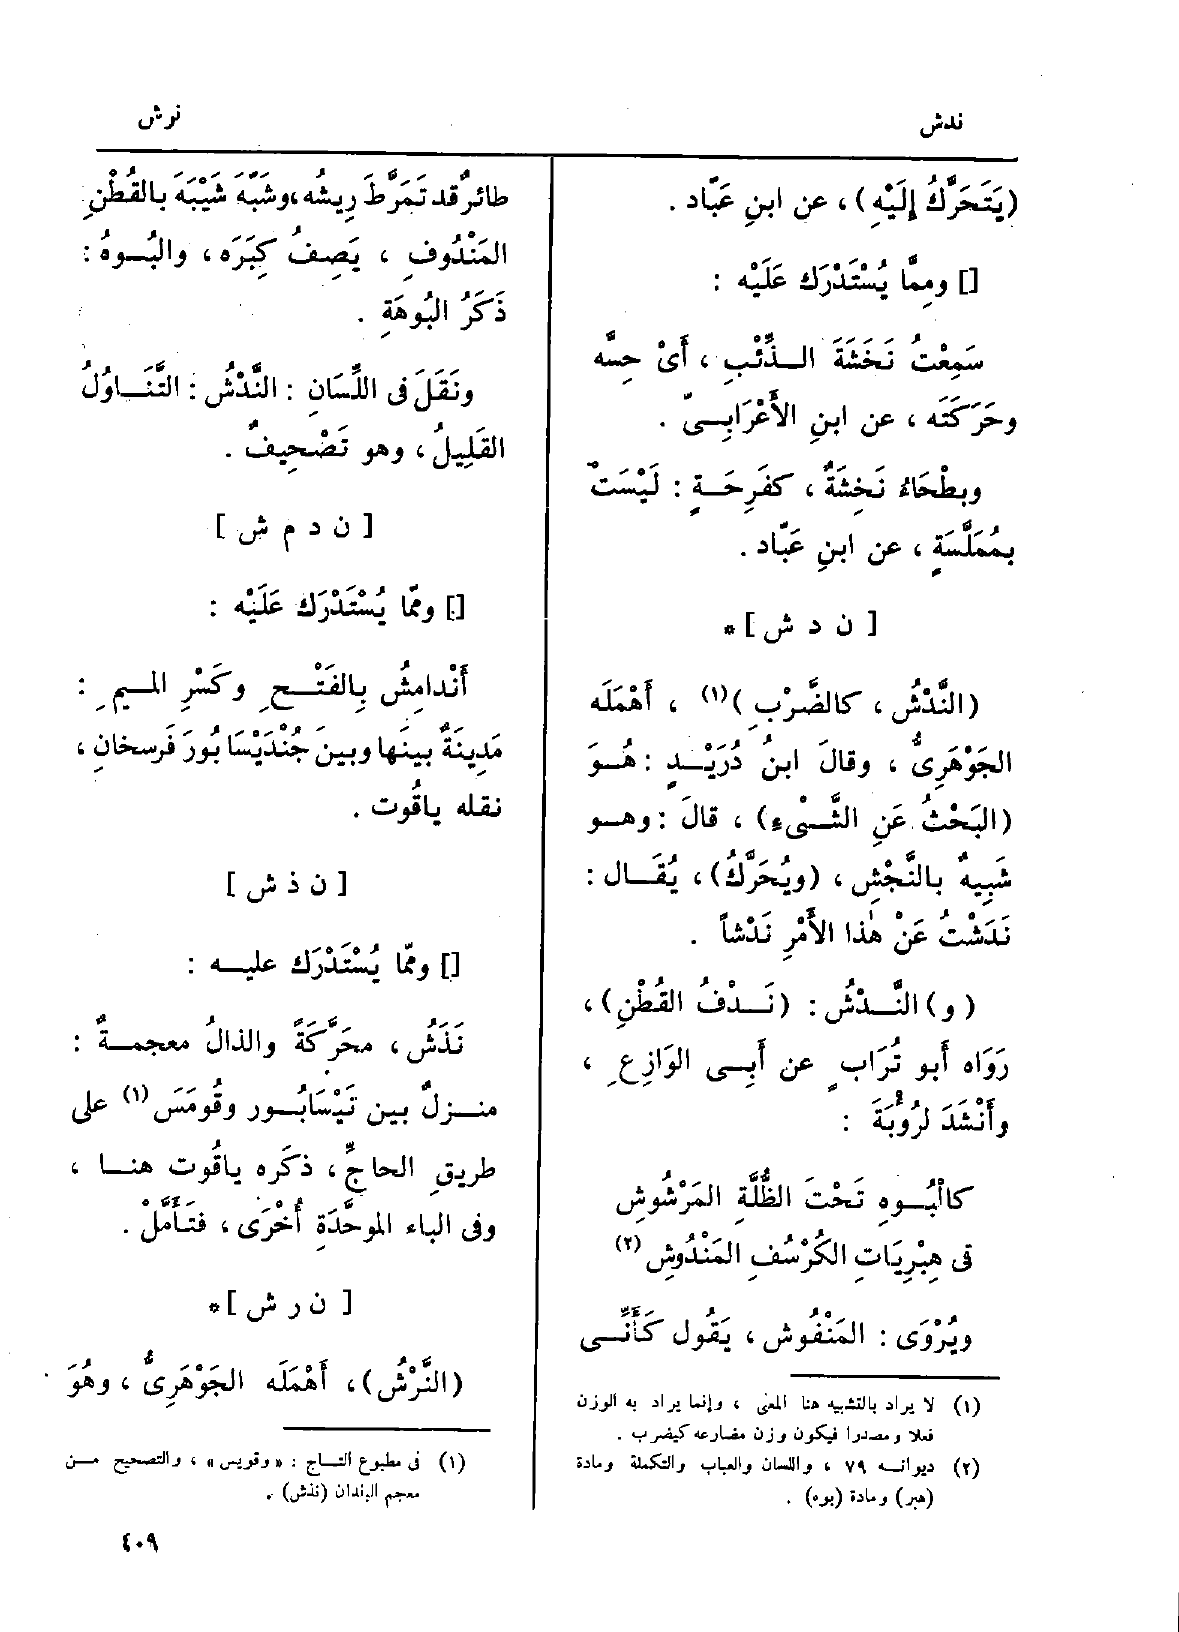 ندش
نرش
(يَتَحَرَّكُ إِلَيْهِ) ، عن ابنِ عَبّاد .
[] ومِمَّا يُسْتَدْرَك عَلَيْه :
سَمِعْتُ نَخَشَةَ الــذِّئْبِ ، أَىْ حِسَّه
وحَرَكَتَه ، عن ابنِ الأَعْرَابِــىّ .
وبطْحَاءُ نَخِشَةٌ ، كفَرِحَــةٍ : لَيْسَتْ
بمُمَلَّسَةٍ ، عن ابنِ عَبّاد .
[ ن د ش ] *
(النَّدْشُ ، كالضَّرْبِ )(١) ، أَهْمَلَه
الجَوْهَرِىُّ ، وقالَ ابنُ دُرَيْــدٍ : هُــوَ
(البَحْثُ عَنِ الشَّــىْءِ) ، قالَ : وهــو
شَبِيهٌ بالنَّجْشِ ، (ويُحَرَّكُ) ، يُقَــال :
نَدَشْتُ عَنْ هٰذا الأَمْرِ نَدْشاً .
( و ) النَّــدْشُ : (نَــدْفُ القُطْنِ) ،
رَوَاه أَبو تُرَابٍ عن أَبِــى الوَازِعِ ،
وأَنْشَدَ لرُؤْبَةَ :
كالْبُــوهِ تَحْتَ الظُّلَّةِ المَرْشُوشِ
فى هِبْرِيَاتِ الكُرْسُفِ المَنْدُوشِ (٢)
ويُرْوَى : المَنْفُوش ، يَقُول كَأَنِّــى
(١) لا يراد بالتشبيه هنا المعنى ، وإنما يراد به الوزن
فعلا ومصدرا فيكون وزن مضارعه كيضرب .
(٢) ديوانــه ٧٩ ، واللسان والعباب والتكملة ومادة
(هبر) ومادة (بوه) .
طائرٌ قد تَمَرَّطَ رِيشُه ، وشَبَّهَ شَيْبَهَ بالقُطْنِ
المَنْدُوفِ ، يَصِفُ كِبَرَه ، والبُــوهُ :
ذَكَرُ البُوهَةِ .
ونَقَلَ فى اللِّسَانِ : النَّدْشُ : التَّنَــاوُلُ
القَلِيلُ ، وهو تَصْحِيفٌ .
[ ن د م ش ]
[] وممّا يُسْتَدْرَك عَلَيْه :
أَنْدامِشُ بالفَتْــحِ وكَسْرِ المــيمِ :
مَدِينَةٌ بينَها وبينَ جُنْدَيْسَابُورَ فَرسخانِ ،
نقله ياقُوت .
[ ن ذ ش ]
[] وممّا يُسْتَدْرَك عليــه :
نَذَشُ ، محَرَّكَةً والذالُ معجمــةٌ :
منــزلٌ بين نَيْسَابُــور وقُومَسَ (١) على
طريقِ الحاجِّ ، ذكَره ياقُوت هنــا ،
وفى الباء الموحَّدَةِ أُخْرَى ، فتَأَمَّلْ .
[ ن ر ش ] *
(النَّرْشُ) ، أَهْمَلَه الجَوْهَرِىُّ ، وهُوَ
(١) فى مطبوع التــاج : «وقويس» ، والتصحيح مــن
معجم البلدان (نذش) .
٤٠٩